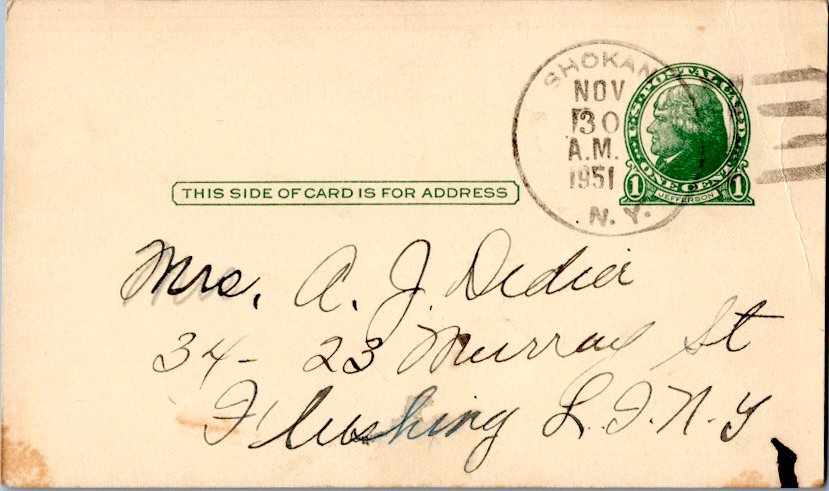 SHOKAN
NOV
30
A.M.
1951
N.Y.
U.S. POSTAL CARD
ONE CENT
1 JEFFERSON 1
THIS SIDE OF CARD IS FOR ADDRESS
Mrs. A. J. Didier
34-23 Murray St
Flushing L.I. N.Y